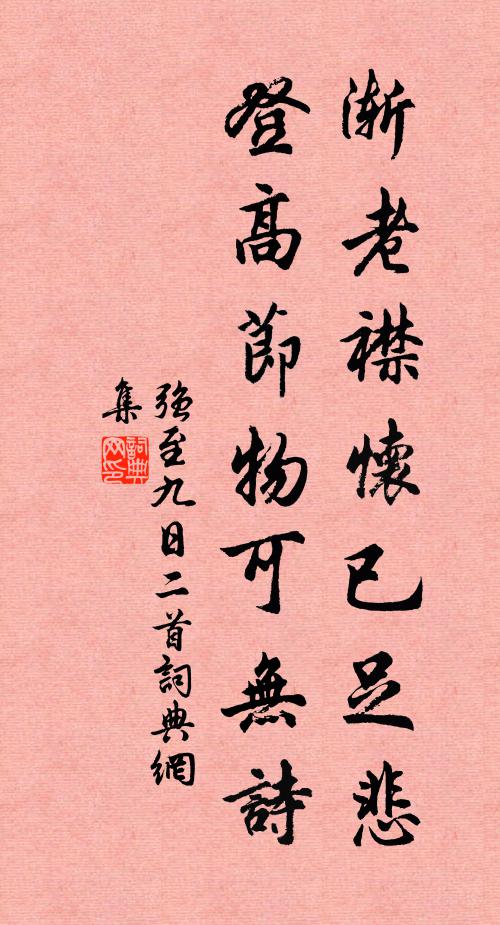 漸老襟懷已足悲
登高節物可無詩
強至九日二首詞典網
集
詞典網印